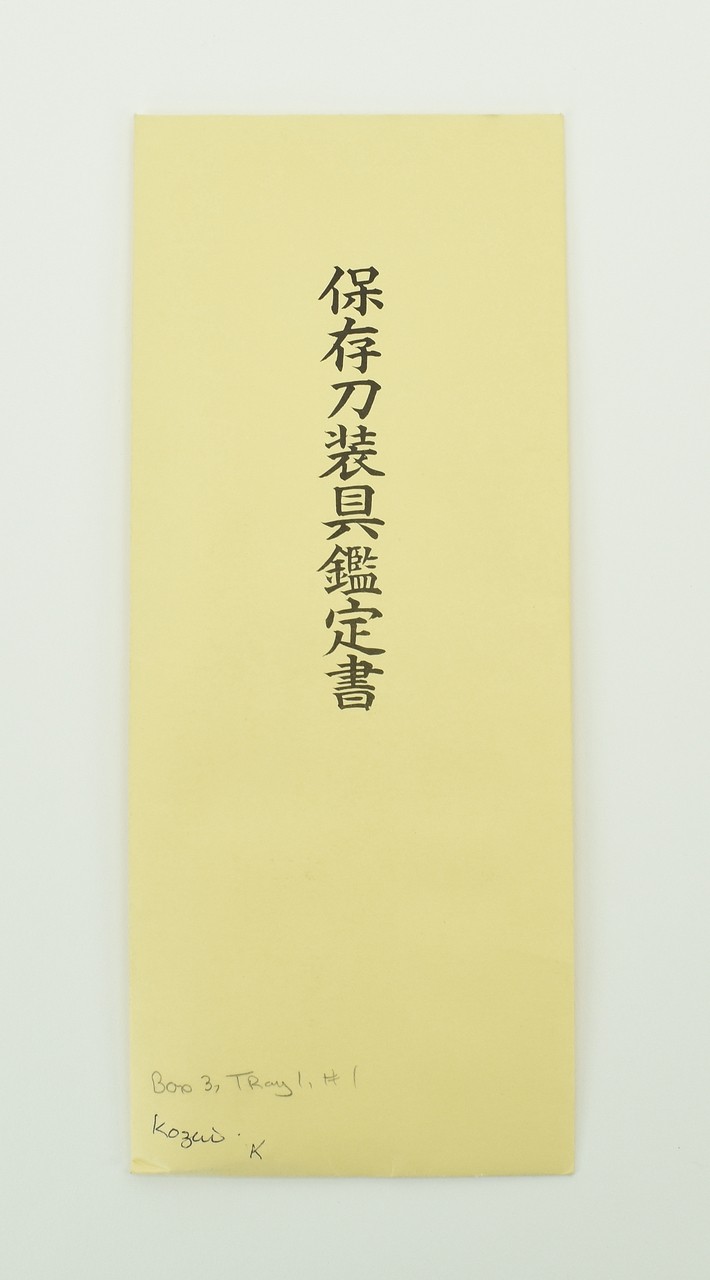 保存刀装具鑑定書
Box 3, Tray 1, #1
Kozui.
K